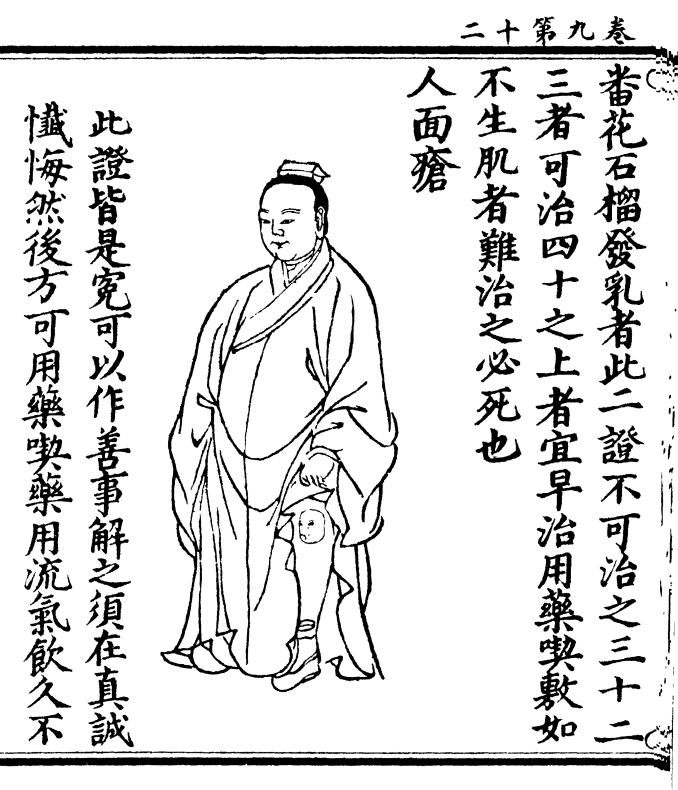 卷九第十二
番花石榴發乳者此二證不可治之三十二
三者可治四十之上者宜早治用藥喫敷如
不生肌者難治之必死也
人面瘡
此證皆是寃可以作善事解之須在真誠
懺悔然後方可用藥喫藥用流氣飲久不